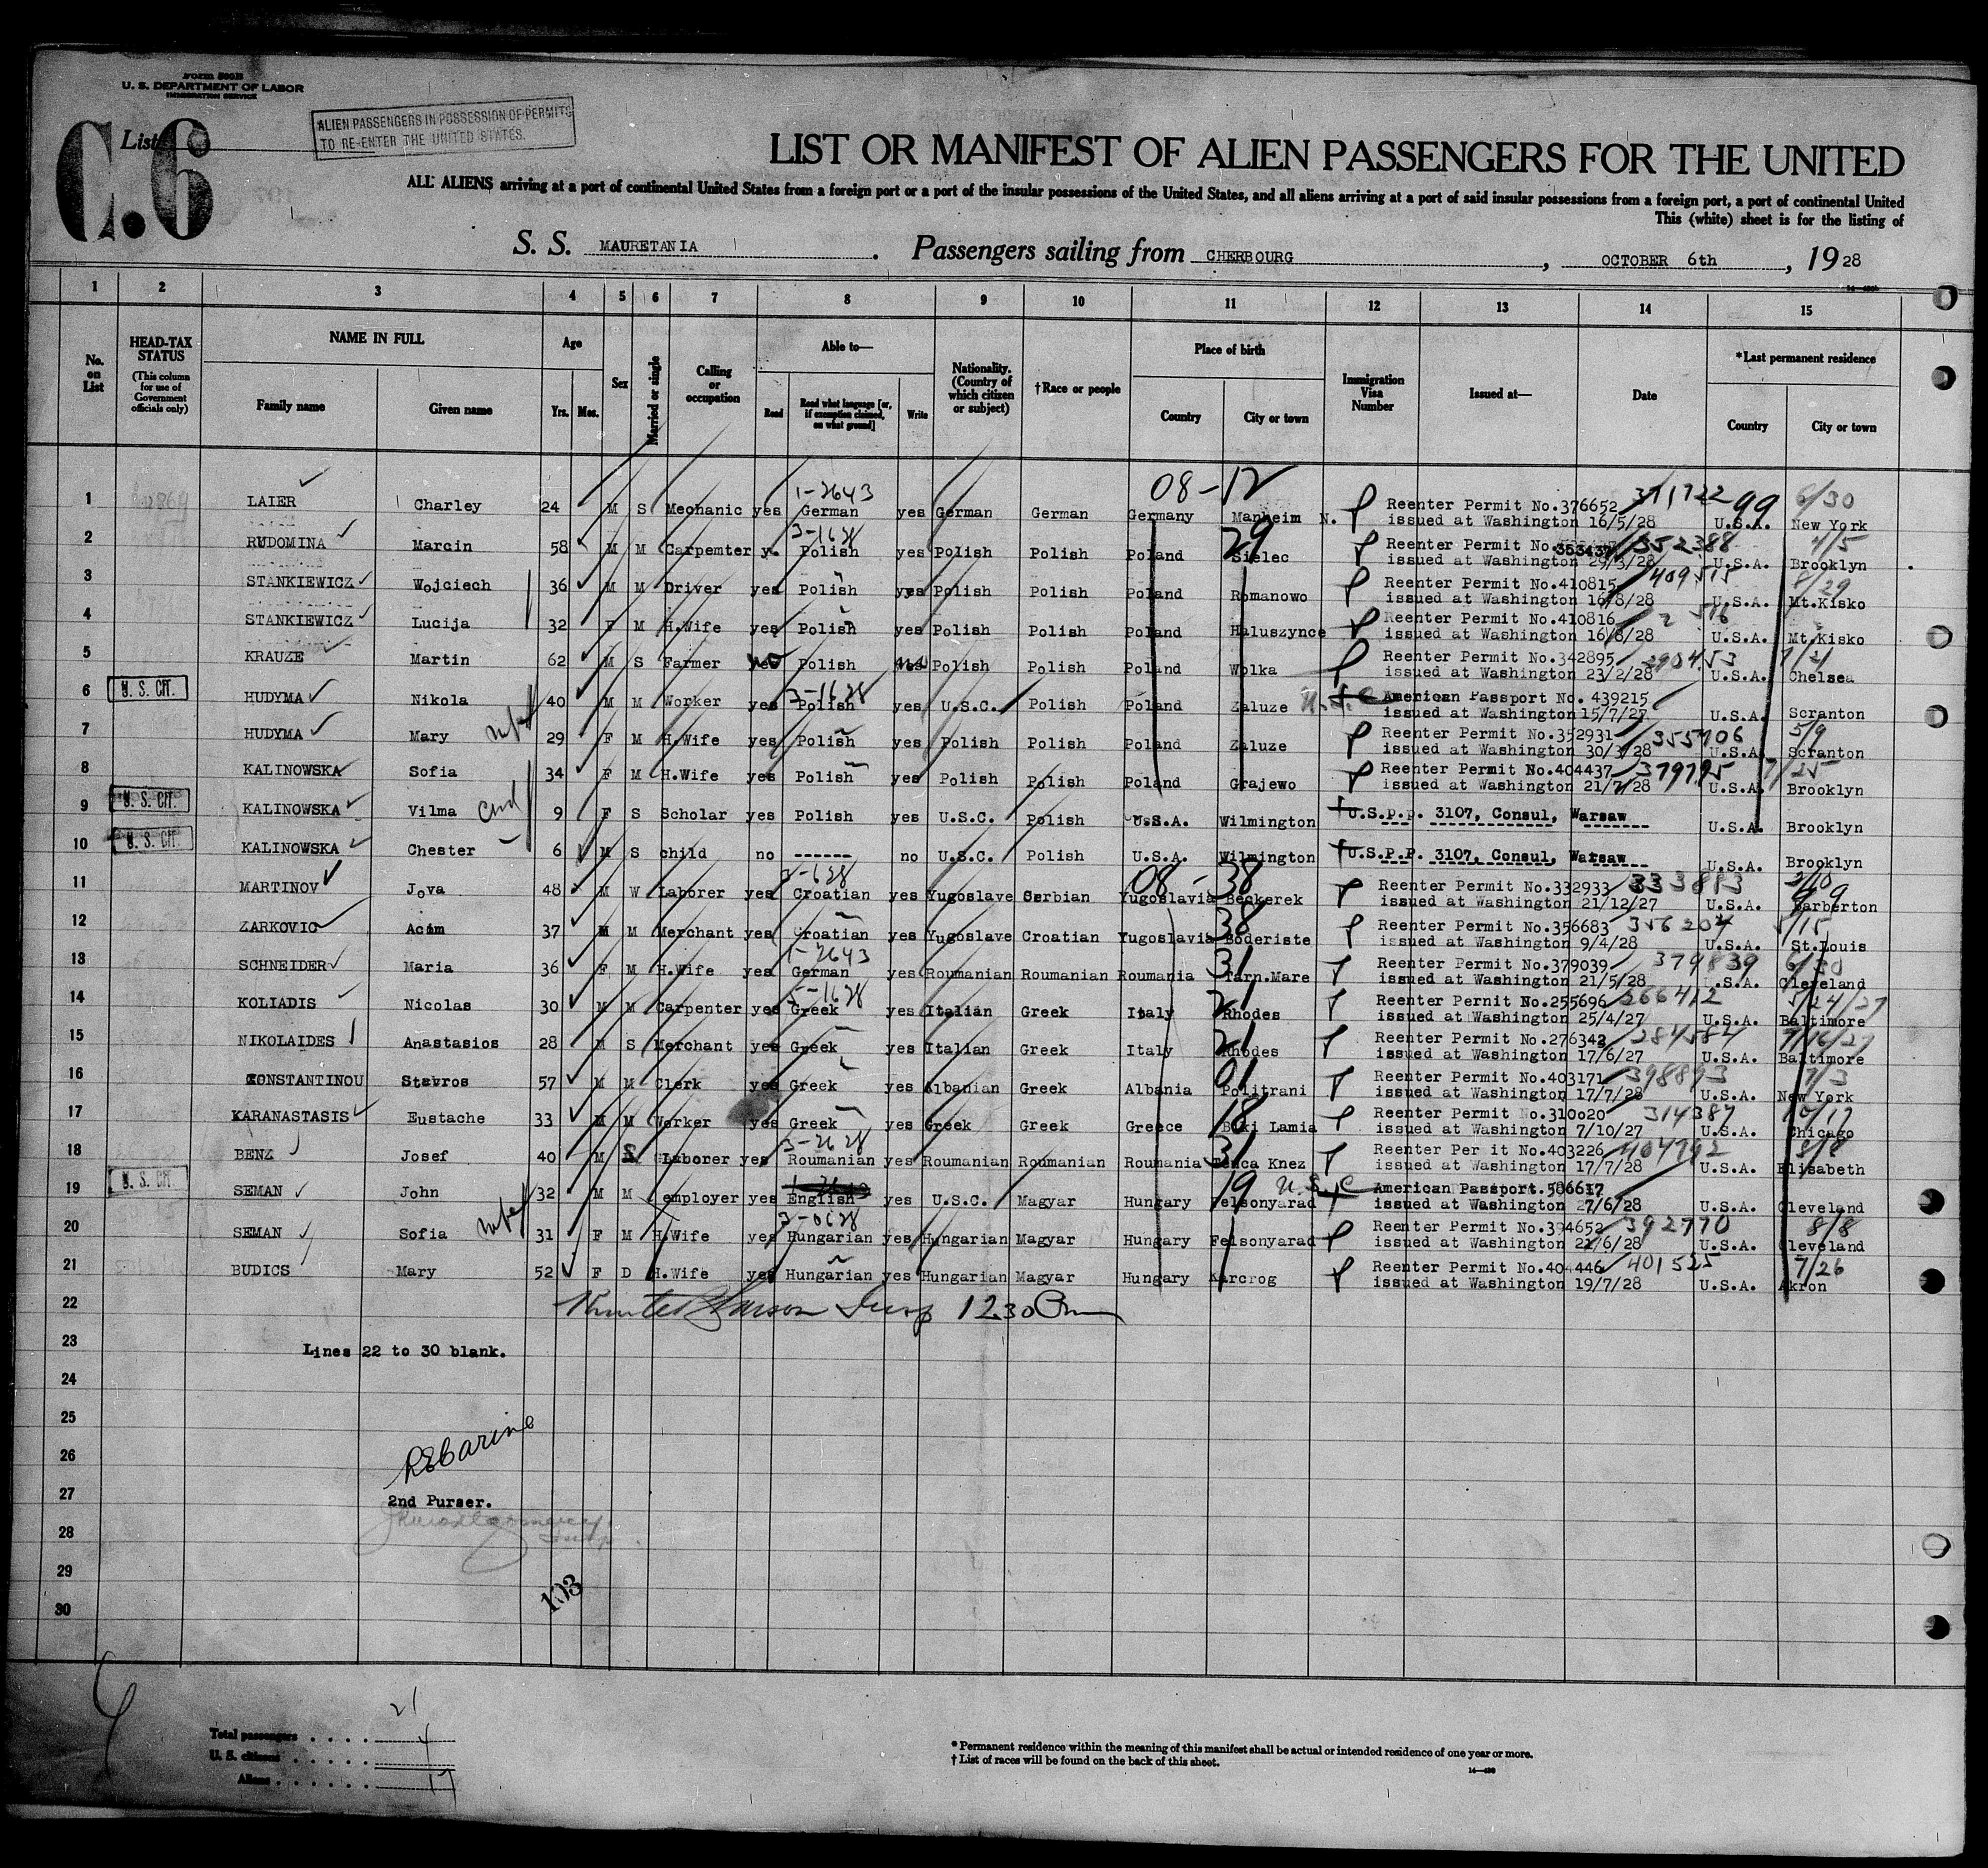 Form 500B
U. S. DEPARTMENT OF LABOR
IMMIGRATION SERVICE
C.6
List
ALIEN PASSENGERS IN POSSESSION OF PERMITS
TO RE-ENTER THE UNITED STATES.
LIST OR MANIFEST OF ALIEN PASSENGERS FOR THE UNITED
ALL ALIENS arriving at a port of continental United States from a foreign port or a port of the insular possessions of the United States, and all aliens arriving at a port of said insular possessions from a foreign port, a port of continental United
This (white) sheet is for the listing of
S. S. MAURETANIA . Passengers sailing from CHERBOURG , OCTOBER 6th , 19 28
1 2 3 4 5 6 7 8 9 10 11 12 13 14 15
No. on List
HEAD-TAX STATUS (This column for use of Government officials only)
NAME IN FULL
Family name Given name
Age Yrs. Mos.
Sex
Married or single
Calling or occupation
Able to—
Read Read what language [or, if exemption claimed, on what ground] Write
Nationality. (Country of which citizen or subject)
†Race or people
Place of birth
Country City or town
Immigration Visa Number
Issued at—
Date
*Last permanent residence
Country City or town
08-12
1-2643
1 LAIER Charley 24 M S Mechanic yes German yes German German Germany Manheim N. Reenter Permit No.376652 371722 99 6/30
issued at Washington 16/5/28 U.S.A. New York
3-1628
2 RUDOMINA Marcin 58 M M Carpemter y. Polish yes Polish Polish Poland 29 Sielec Reenter Permit No. 353437 352388 4/5
issued at Washington 29/3/28 U.S.A. Brooklyn
3 STANKIEWICZ Wojciech 36 M M Driver yes Polish yes Polish Polish Poland Romanowo Reenter Permit No.410815 409515 8/29
issued at Washington 16/8/28 U.S.A. Mt.Kisko
4 STANKIEWICZ Lucija 32 F M H.Wife yes Polish yes Polish Polish Poland Haluszynce Reenter Permit No.410816 516
issued at Washington 16/8/28 U.S.A. Mt.Kisko
5 KRAUZE Martin 62 M S Farmer no Polish Polish Polish Poland Wolka Reenter Permit No.342895 290453
issued at Washington 23/2/28 U.S.A. Chelsea
3-1628
6 U. S. CIT. HUDYMA Nikola 40 M M Worker yes Polish yes U.S.C. Polish Poland Zaluze American Passport No. 439215
issued at Washington 15/7/27 U.S.A. Scranton
7 HUDYMA Mary wife 29 F M H.Wife yes Polish yes Polish Polish Poland Zaluze Reenter Permit No.352931 355706 5/9
issued at Washington 30/3/28 U.S.A. Scranton
8 KALINOWSKA Sofia 34 F M H.Wife yes Polish yes Polish Polish Poland Grajewo Reenter Permit No.404437 379795 7/25
issued at Washington 21/7/28 U.S.A. Brooklyn
9 U. S. CIT. KALINOWSKA Vilma 9 F S Scholar yes Polish yes U.S.C. Polish U.S.A. Wilmington U.S.P.p. 3107, Consul, Warsaw
U.S.A. Brooklyn
10 U. S. CIT. KALINOWSKA Chester 6 M S child no ------ no U.S.C. Polish U.S.A. Wilmington U.S.P.P. 3107, Consul, Warsaw
U.S.A. Brooklyn
08-38
11 MARTINOV Jova 48 M W Laborer yes Croatian yes Yugoslave Serbian Yugoslavia Beckerek Reenter Permit No.332933 333883 2/10
issued at Washington 21/12/27 U.S.A. Barberton
12 ZARKOVIC Acim 37 M M Merchant yes Croatian yes Yugoslave Croatian Yugoslavia 38 Boderiste Reenter Permit No.356683 356204 5/15
issued at Washington 9/4/28 U.S.A. St.Louis
1-2643
13 SCHNEIDER Maria 36 F M H.Wife yes German yes Roumanian Roumanian Roumania 31 Tarn.Mare Reenter Permit No.379039 379839 6/30
issued at Washington 21/5/28 .S.A. Cleveland
14 KOLIADIS Nicolas 30 M M Carpenter yes Greek yes Italian Greek Italy 21 Rhodes Reenter Pernit No.255696 266412 5/24/27
issued at Washington 25/4/27 U.S.A. Baltimore
15 NIKOLAIDES Anastasios 28 M S Merchant yes Greek yes Italian Greek Italy 21 Rhodes Reenter Permit No.276342 284584 7/16/27
issued at Washington 17/6/27 U.S.A. Baltimore
16 CONSTANTINOU Stavros 57 M M Clerk yes Greek yes Albanian Greek Albania 01 Politrani Reenter Permit No.403171 398893 7/3
issued at Washington 17/7/28 U.S.A. New York
17 KARANASTASIS Eustache 33 M M Worker yes Greek yes Greek Greek Greece 18 Beki Lamia Reenter Permit No.310020 314387 10/17
issued at Washington 7/10/27 U.S.A. Chicago
3-2628
18 BENZ Josef 40 M S Laborer yes Roumanian yes Roumanian Roumanian Roumania 31 Knez Reenter Per it No.403226 404792 8/8
issued at Washington 17/7/28 U.S.A. Elisabeth
19 U. S. CIT. SEMAN John 32 M M employer yes English yes U.S.C. Magyar Hungary 19 Felsonyarad U.S.C American Passport.586617
issued at Washington 27/6/28 U.S.A. Cleveland
3-0628
20 SEMAN Sofia wife 31 F M H.Wife yes Hungarian yes Hungarian Magyar Hungary Felsonyarad Reenter Permit No.394652 392770 8/8
issued at Washington 22/6/28 U.S.A. Cleveland
21 BUDICS Mary 52 F D H.Wife yes Hungarian yes Hungarian Magyar Hungary Karcrog Reenter Permit No.404446 401525 7/26
issued at Washington 19/7/28 U.S.A. Akron
22 Insp 1230 Pm
23 Lines 22 to 30 blank.
24
25
26
27 2nd Purser.
28
29
30
103
Total passengers . . . . 21
U. S. citizens . . . . . 4
Aliens . . . . . . 17
* Permanent residence within the meaning of this manifest shall be actual or intended residence of one year or more.
† List of races will be found on the back of this sheet.